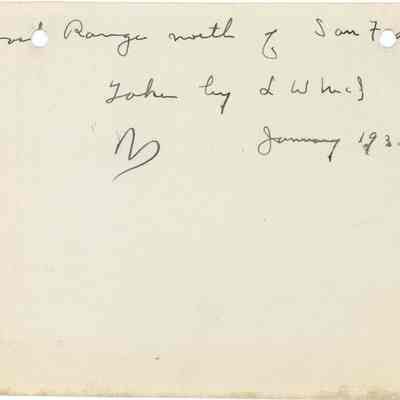 Range north of San F
Taken by L W McJ
January 193